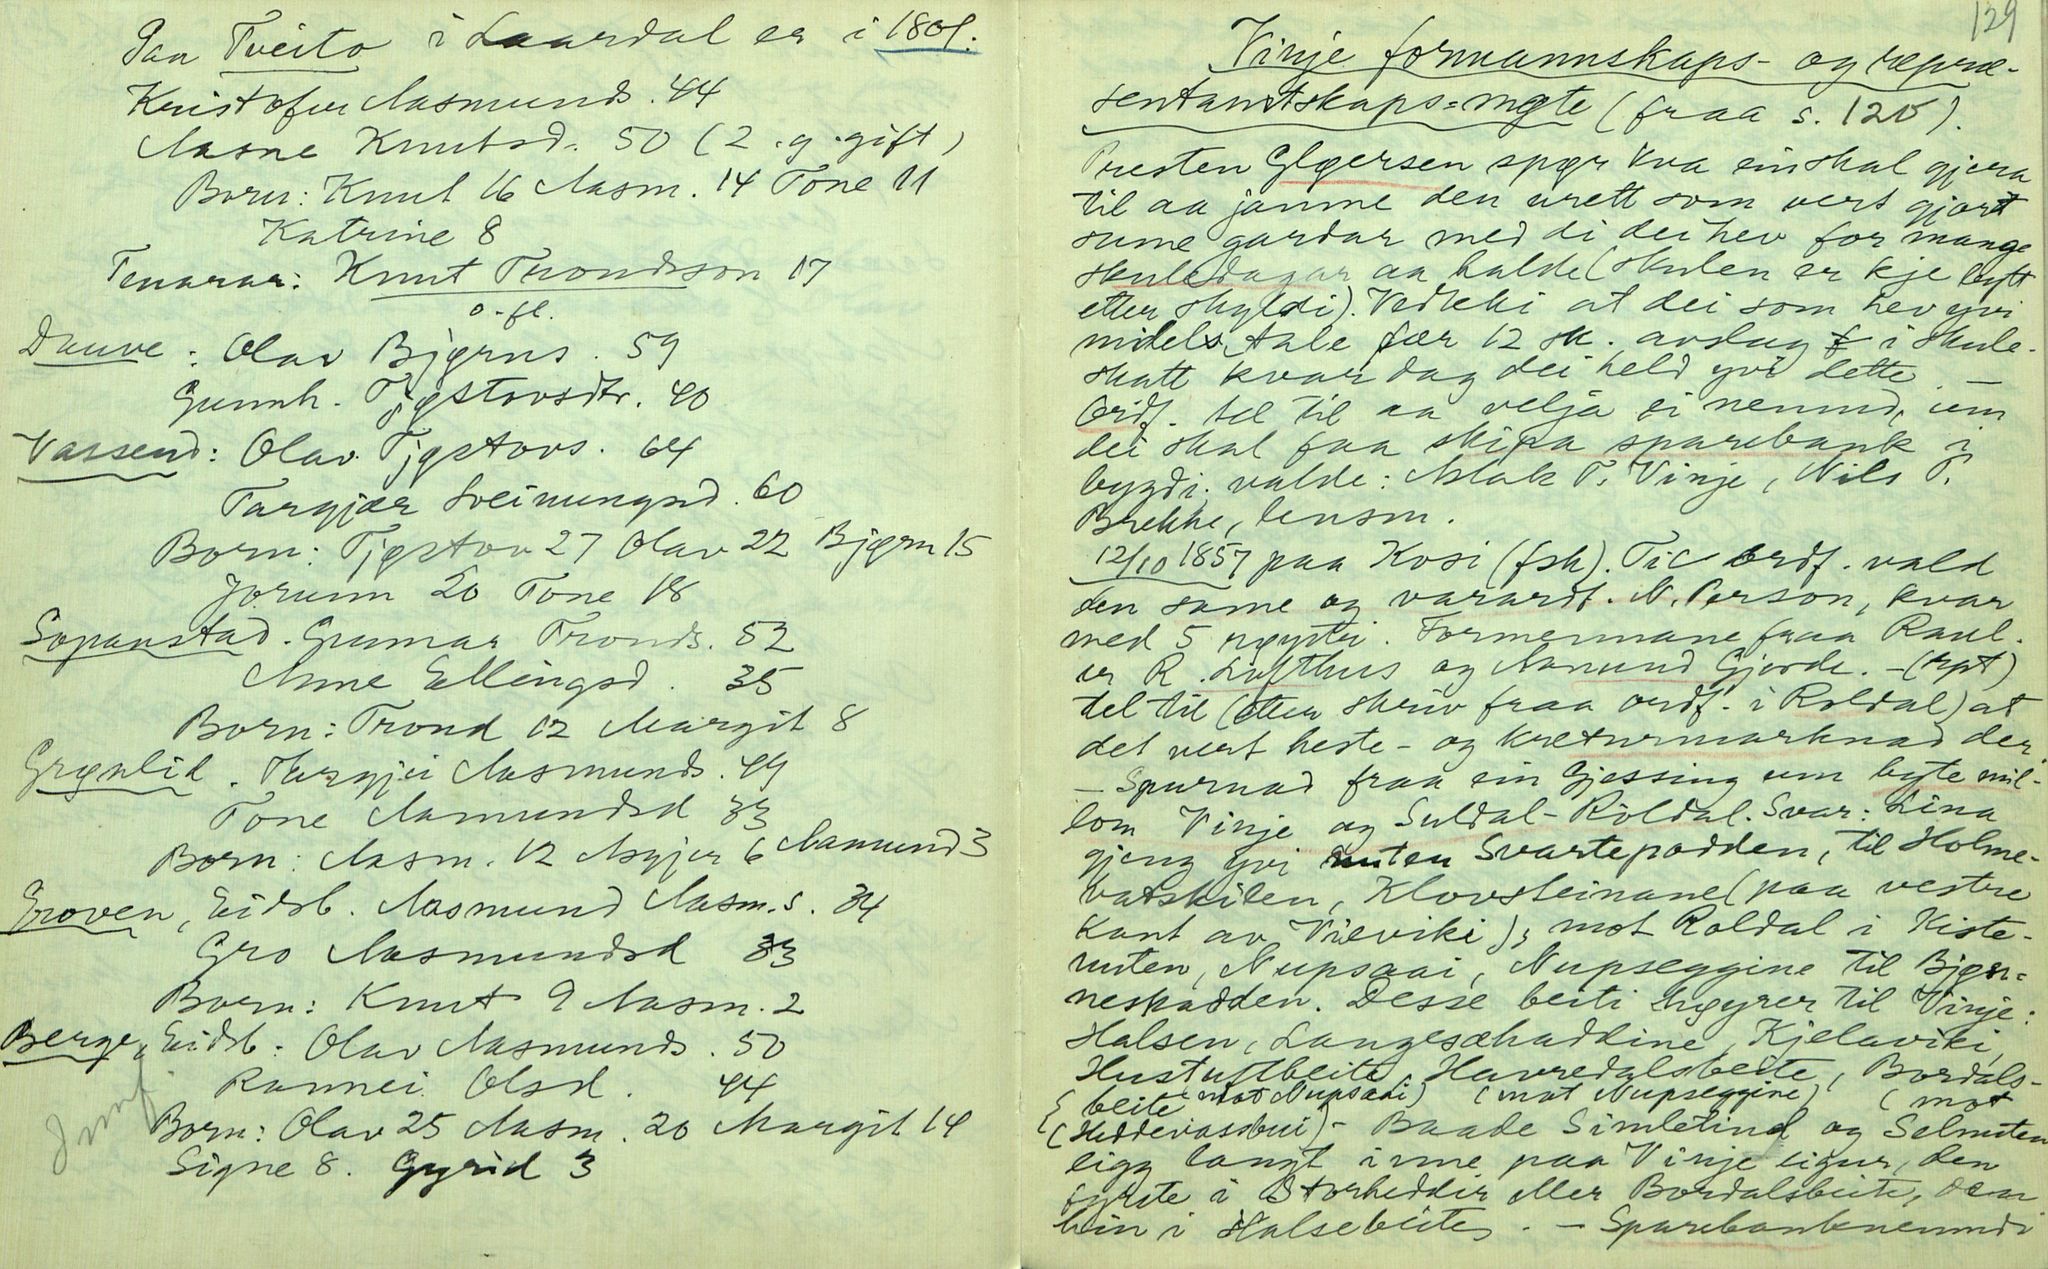 Paa Tveito i Laardal er i 1801.
Kristofer Aasmunds. 44
Aasne Knutsd. 50 (2. g. gift)
Born: Knut 16 Aasm. 14 Tone 11
Katrine 8
Tenarar: Knut Trondsson 17
o. fl.
Dauve: Olav Bjørns. 59
Gunnh. Tjøstovsdtr. 40
Vassend: Olav Tjøstovs. 64
Targjær Sveinungsd. 60
Born: Tjøstov 27 Olav 22 Bjørn 15
Jorunn 20 Tone 18
Sopanstad. Gunnar Tronds. 52
Anne Ellingsd. 35
Born: Trond 12 Margit 8
Grønlid. Targjei Aasmunds. 49
Tone Aamundsd 33
Born: Aasm. 12 Asgjer 6 Aamund 3
Groven, Eidsb. Aasmund Aasm.s. 34
Gro Aasmundsd 33
Born: Knut 9 Aasm. 2
Berge, Eidsb: Olav Aasmunds. 50
Rannei Olsd. 44
Jmf.
Born: Olav 25 Aasm. 20 Margit 14
Signe 8. Gyrid 3
129
Vinje formannskaps- og repræ-
sentantskaps=møte (fraa s. 120).
Presten Gløersen spør kva ein skal gjera
til aa jamne den urett som vert gjort
sume gardar med di dei hev for mange
skuledagar aa halde (skulen er kje bytt
etter skyldi). Vedteki at dei som hev yvi
midels tale fær 12 sk. avslag i skule-
skatt kvar dag dei held yvi dette. —
Ordf. tel til aa velja ei nemnd, um
dei skal faa skipa sparebank i
bygdi. valde: Aslak T. Vinje, Nils T.
Brekke, lensm.
12/10 1857 paa Kosi (fsk). Tic ordf. vald
den same og varardf. N. Person, kvar
med 5 røyster. Formennane fraa Raul.
er R. Lofthus og Aamund Gjorde. — (rpt)
tel til (etter skriv fraa ordf. i Roldal) at
det vert heste- og kreturmarknad der
— Spurnad fraa ein Gjessing um byte mil-
lom Vinje og Suldal-Röldal. Svar: Lina
gjeng yvi nuten Svartepodden, til Holme-
vatskilen, Klovsteinane (paa vestre
kant av Vilviki), mot Roldal i Kiste-
nuten, Nupsaai, Nupseggine til Bjørn-
neskadden. Desse beiti høyrer til Vinje:
Halsen, Langesæhaddine, Kjelaviki,
Hustuftbeite, Havredalsbeite, Bordals-
beite (mot Nupsaai) (mot Nupseggine) (mot
Heddevassbui) — Baade Simletind og Selnuten
ligg langt inne paa Vinje eigur, den
fyrste i Storheddir eller Bordalsbeite, den
hin i Halsebeite. — Sparebanknemndi